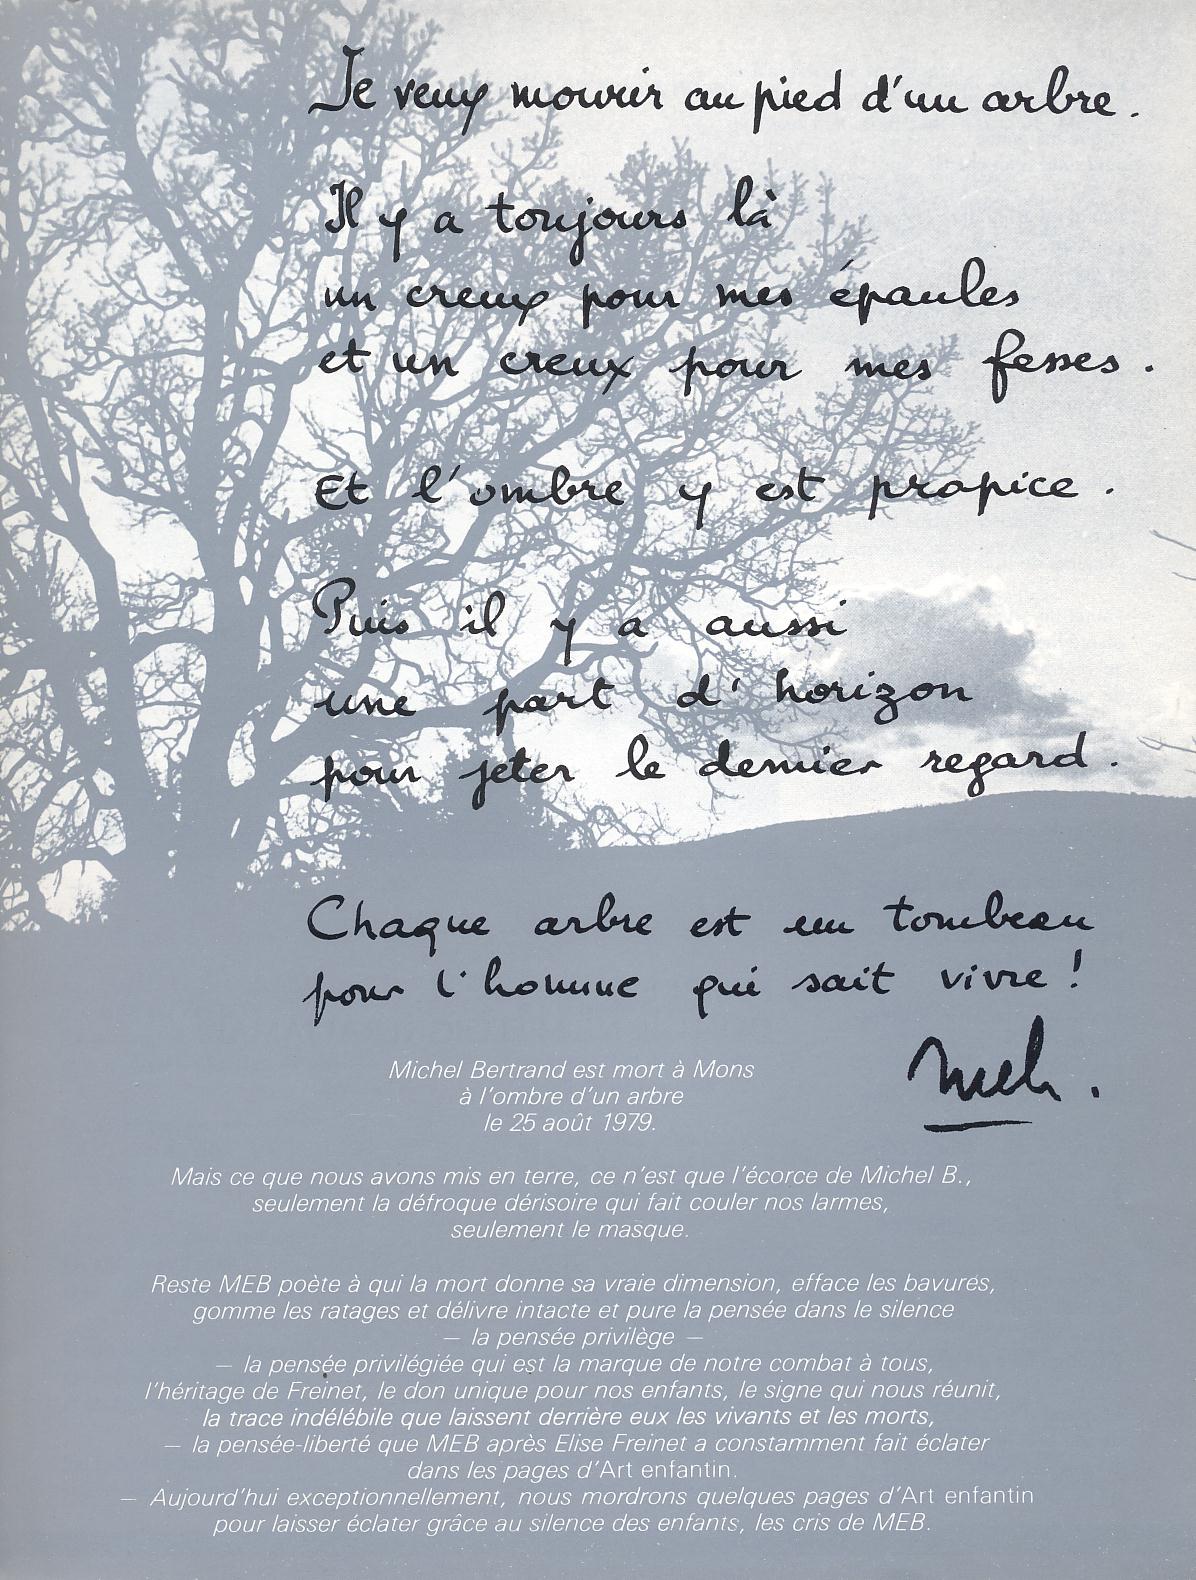 Je veux mourir au pied d'un arbre.
Il y a toujours là
un creux pour mes épaules
et un creux pour mes fesses.
Et l'ombre y est propice.
Puis il y a aussi
une part d'horizon
pour jeter le dernier regard.
Chaque arbre est un tombeau
pour l'homme qui sait vivre !
Meb.
Michel Bertrand est mort à Mons
à l'ombre d'un arbre
le 25 août 1979.
Mais ce que nous avons mis en terre, ce n'est que l'écorce de Michel B.,
seulement la défroque dérisoire qui fait couler nos larmes,
seulement le masque.
Reste MEB poète à qui la mort donne sa vraie dimension, efface les bavures,
gomme les ratages et délivre intacte et pure la pensée dans le silence
— la pensée privilège —
— la pensée privilégiée qui est la marque de notre combat à tous,
l'héritage de Freinet, le don unique pour nos enfants, le signe qui nous réunit,
la trace indélébile que laissent derrière eux les vivants et les morts,
— la pensée-liberté que MEB après Elise Freinet a constamment fait éclater
dans les pages d'Art enfantin.
— Aujourd'hui exceptionnellement, nous mordrons quelques pages d'Art enfantin
pour laisser éclater grâce au silence des enfants, les cris de MEB.